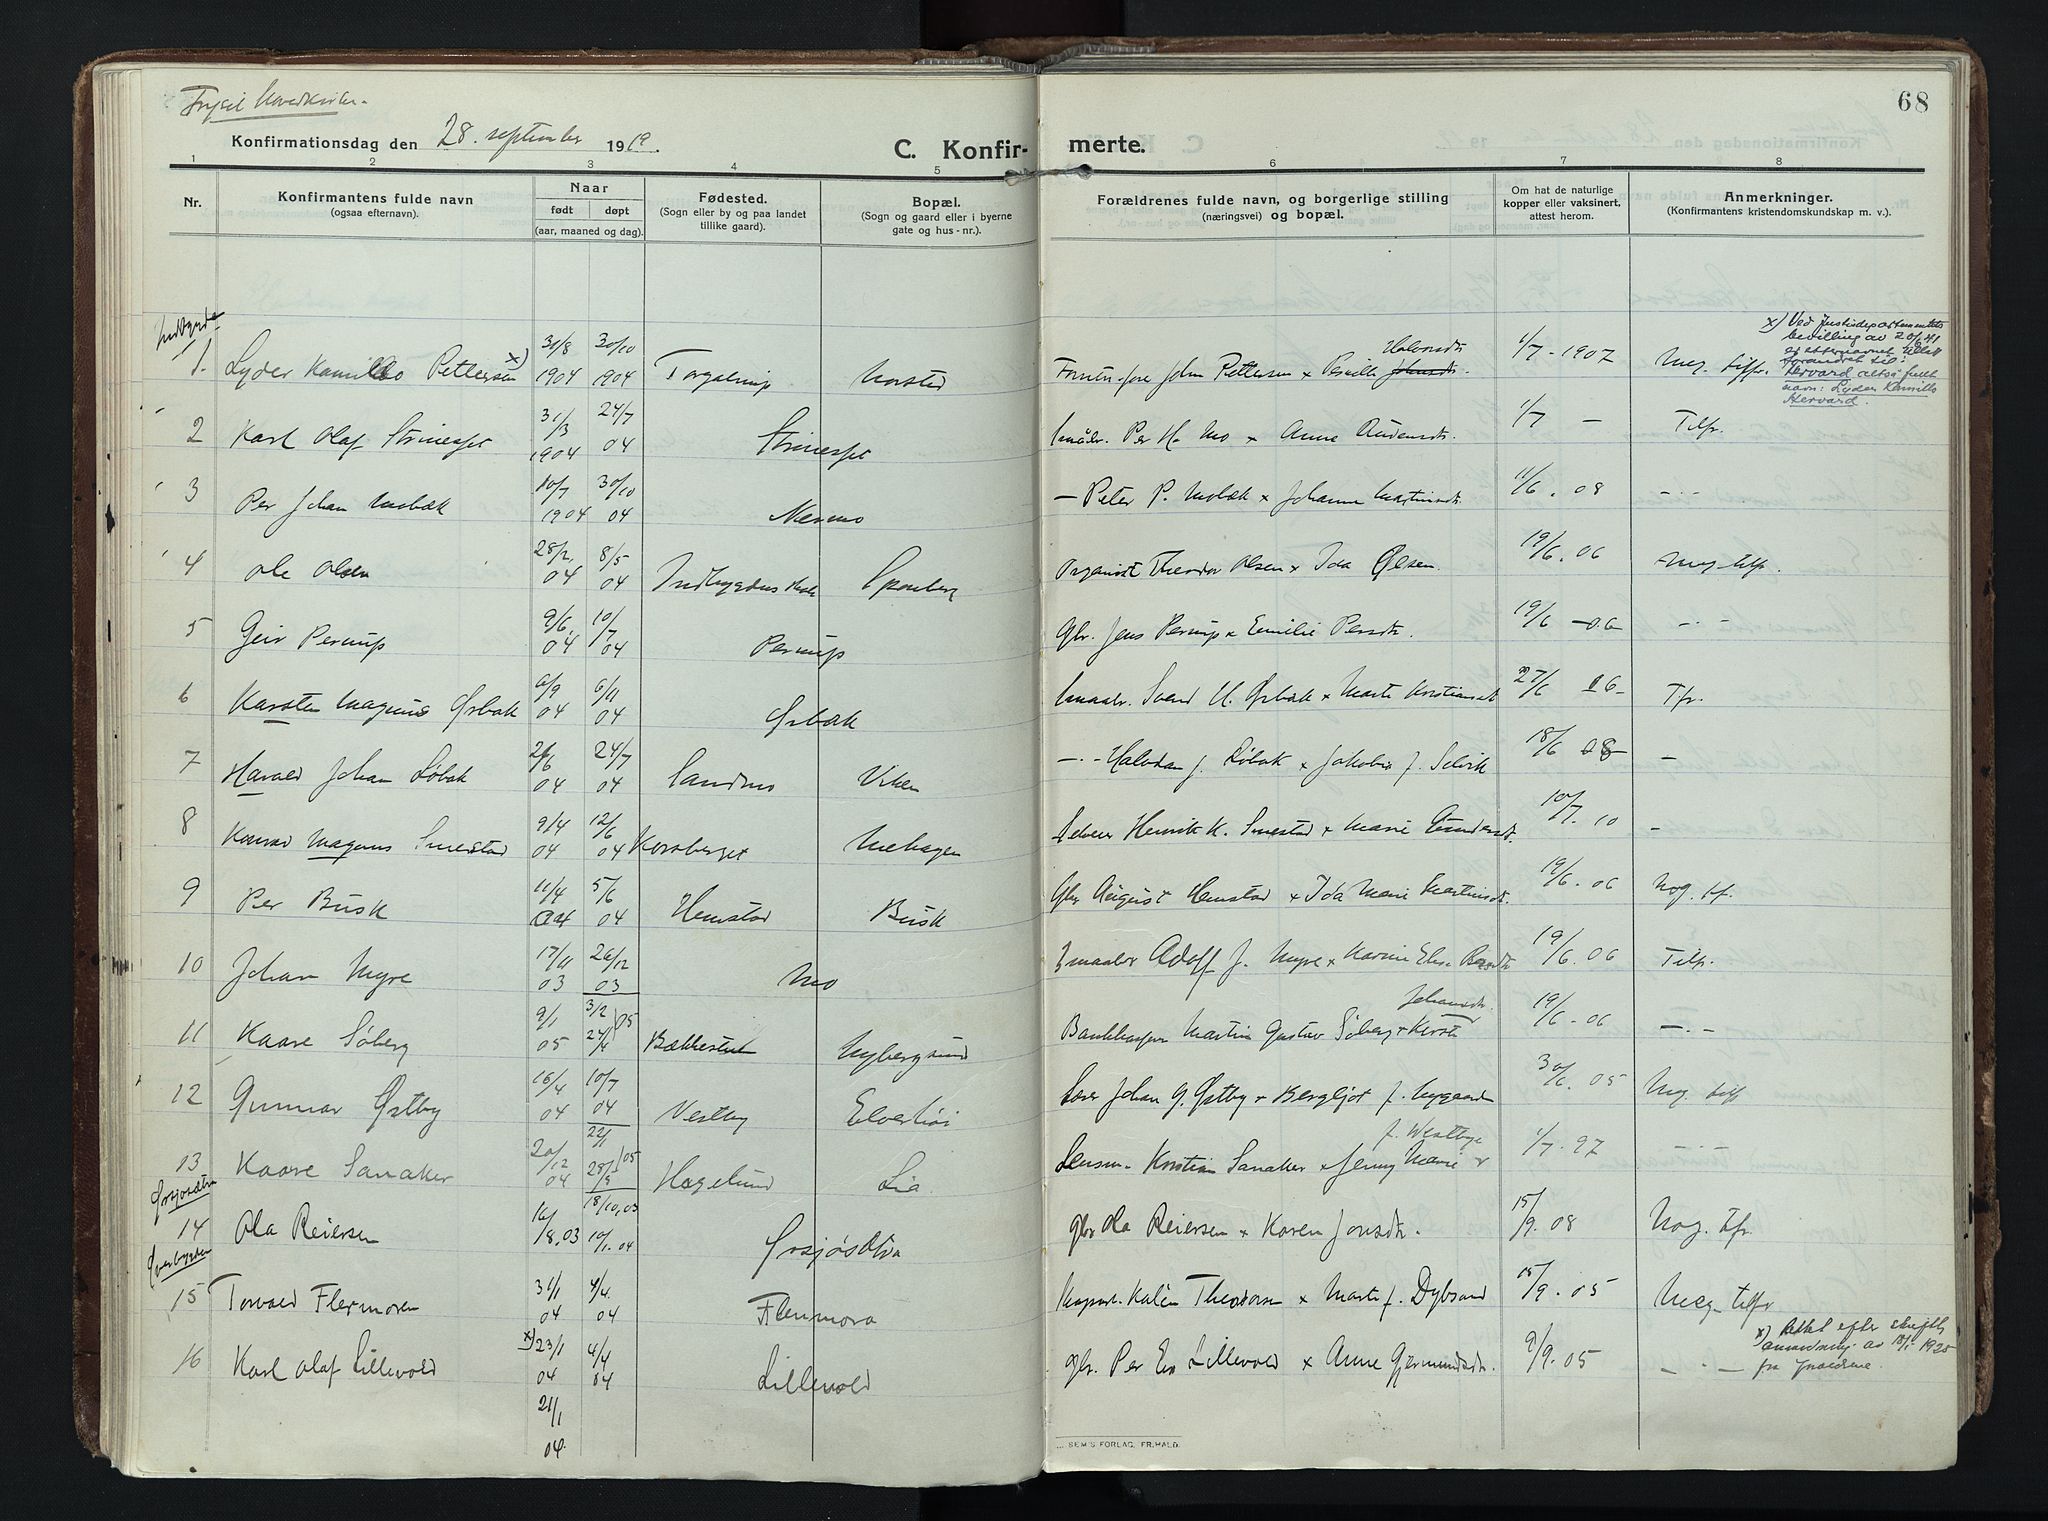 Trysil Hovedkirke.
68
Konfirmationsdag den 28. september 1919.
C. Konfir- merte.
1 2 3 4 5 6 7 8
Nr.
Konfirmantens fulde navn
(ogsaa efternavn).
Naar
født døpt
(aar, maaned og dag).
Fødested.
(Sogn eller by og paa landet
tillike gaard).
Bopæl.
(Sogn og gaard eller i byerne
gate og hus-nr.).
Forældrenes fulde navn, og borgerlige stilling
(næringsvei) og bopæl.
Om hat de naturlige
kopper eller vaksinert,
attest herom.
Anmerkninger.
(Konfirmantens kristendomskundskap m. v.).
x) Ved Justisdepartementets
bevilling av 20/6 41
er etternavnet tillatt
forandret til:
Hervard altså fullt
navn: Lyder Kamillo
Hervard.
1. Lyder Kamillo Pettersen x) 31/8 1904 30/10 1904 Norsted John Pettersen x Pernille Johnsdt. Halvorsdt. 1/7 - 1907 Meg. tilfr.
2 Karl Olaf Strinesset 31/3 1904 24/7 04 Strinesset Per H. Mo x Anne Audensdt. 1/7 — Tilfr.
3 Per Johan Mobæk 10/7 1904 30/10 04 Nermo — Peter P. Mobæk x Johanne Martinsdt. 11/6 . 08 — . —
4 Ole Olsen 28/2 04 8/5 04 Organist Theodor Olsen x Ida Olsen. 19/6 . 06 Meg tilfr.
5 Geir Pernup 9/6 04 10/7 04 Pernup Gbr. Jens Pernup x Emilie Persdt. 19/6 — 06 — . —
6 Karsten Magnus Ørbæk 9/9 04 6/11 04 Ørbæk Smaabr. Svend H. Ørbæk x Marte Kristianset 27/6 06 — Tfr.
7 Harald Johan Løbak 04 24/7 04 Sandmo Viken — . — Halvdan J. Løbak x Jakobie f. Selvik 18/6 08 —
8 Konrad Magnus Smestad 9/4 04 12/6 04 Korsberget Mehagen Henrik K. Smestad x Marie Gundersdt. 10/7 . 10 —
9 Per Busk 11/4 04 5/6 04 Hemstad Busk Gbr August Hemstad x Ida Marie Martinsdt. 19/6 . 06 Nog. tf.
10 Johan Myre 17/11 03 26/12 03 Mo Smaabr Adolf J. Myre x Karine Else 19/6 . 06 Tilfr.
11 Kaare Søberg 9/1 05 3/2 24/4 05 Bækkestuen Nybergsund Martin Gustav Søberg x Kirsti Johansdt. 19/6 - 06 — . —
12 Gunnar Østby 16/4 04 10/7 04 Vestby Elverhøi Johan G. Østby x Bergljot f. Nygaard 30/6 . 05 Meg tilfr
13 Kaare Sanaker 20/12 04 22/1 05 Hagelund Lia Lensm. Kristian Sanaker x Jenny Marie f. Westbye 1/7 . 97 — . —
14 Ola Reiersen 16/8.03 18/10,03 10/1.04 gbr Ola Reiersen x Karen Jonsdt. 15/9 . 08 Nog. tfr.
15 Torvald Flermoen 31/1 04 4/4 04 Flenmora Kalèn Theodorsen x Marte f. Dybsand 15/9 . 05 Meg tilfr
16 Karl Olaf Lillevold x) 23/1 04 4/4 04 Lillevold gbr. Per Lillevold x Anne Gjermundsdt. 9/9 . 05 — . —
21/1 04.
x) Rettet efter skriftlig
1925
fra
SEM'S FORLAG, FR.HALD.